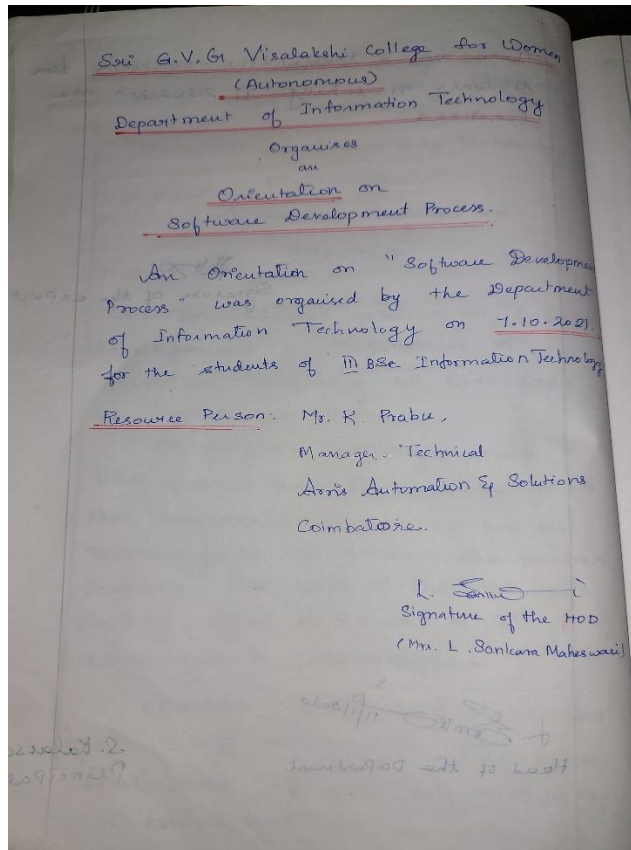 Sri G.V.G Visalakshi College for Women
(Autonomous)
Department of Information Technology
Organises
an
Orientation on
Software Development Process.
An Orientation on "Software Developmen
Process" was organised by the Department
of Information Technology on 7.10.2021.
for the students of III BSc Information Technology
Resource Person: Mr. K. Prabu,
Manager. Technical
Arris Automation & Solutions
Coimbatore.
L.
Signature of the HOD
(Mrs. L. Sankara Maheswari)
Head of the Department